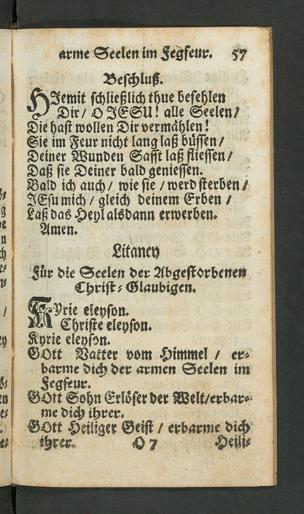 arme Seelen im Fegfeur. 57
Beschluß.
HJemit schließlich thue befehlen
Dir / O JESU! alle Seelen /
Die hast wollen Dir vermählen!
Sie im Feur nicht lang laß büssen /
Deiner Wunden Safft laß fliessen /
Daß sie Deiner bald geniessen.
Bald ich auch / wie sie / werd sterben /
JEsu mich / gleich deinem Erben /
Laß das Heyl alsdann erwerben.
Amen.
Litaney
Für die Seelen der Abgestorbenen
Christ-Glaubigen.
KYrie eleyson.
Christe eleyson.
Kyrie eleyson.
GOtt Vatter vom Himmel / er-
barme dich der armen Seelen im
Fegfeur.
GOtt Sohn Erlöser der Welt / erbar-
me dich ihrer.
GOtt Heiliger Geist / erbarme dich
ihrer. O 7 Heili-